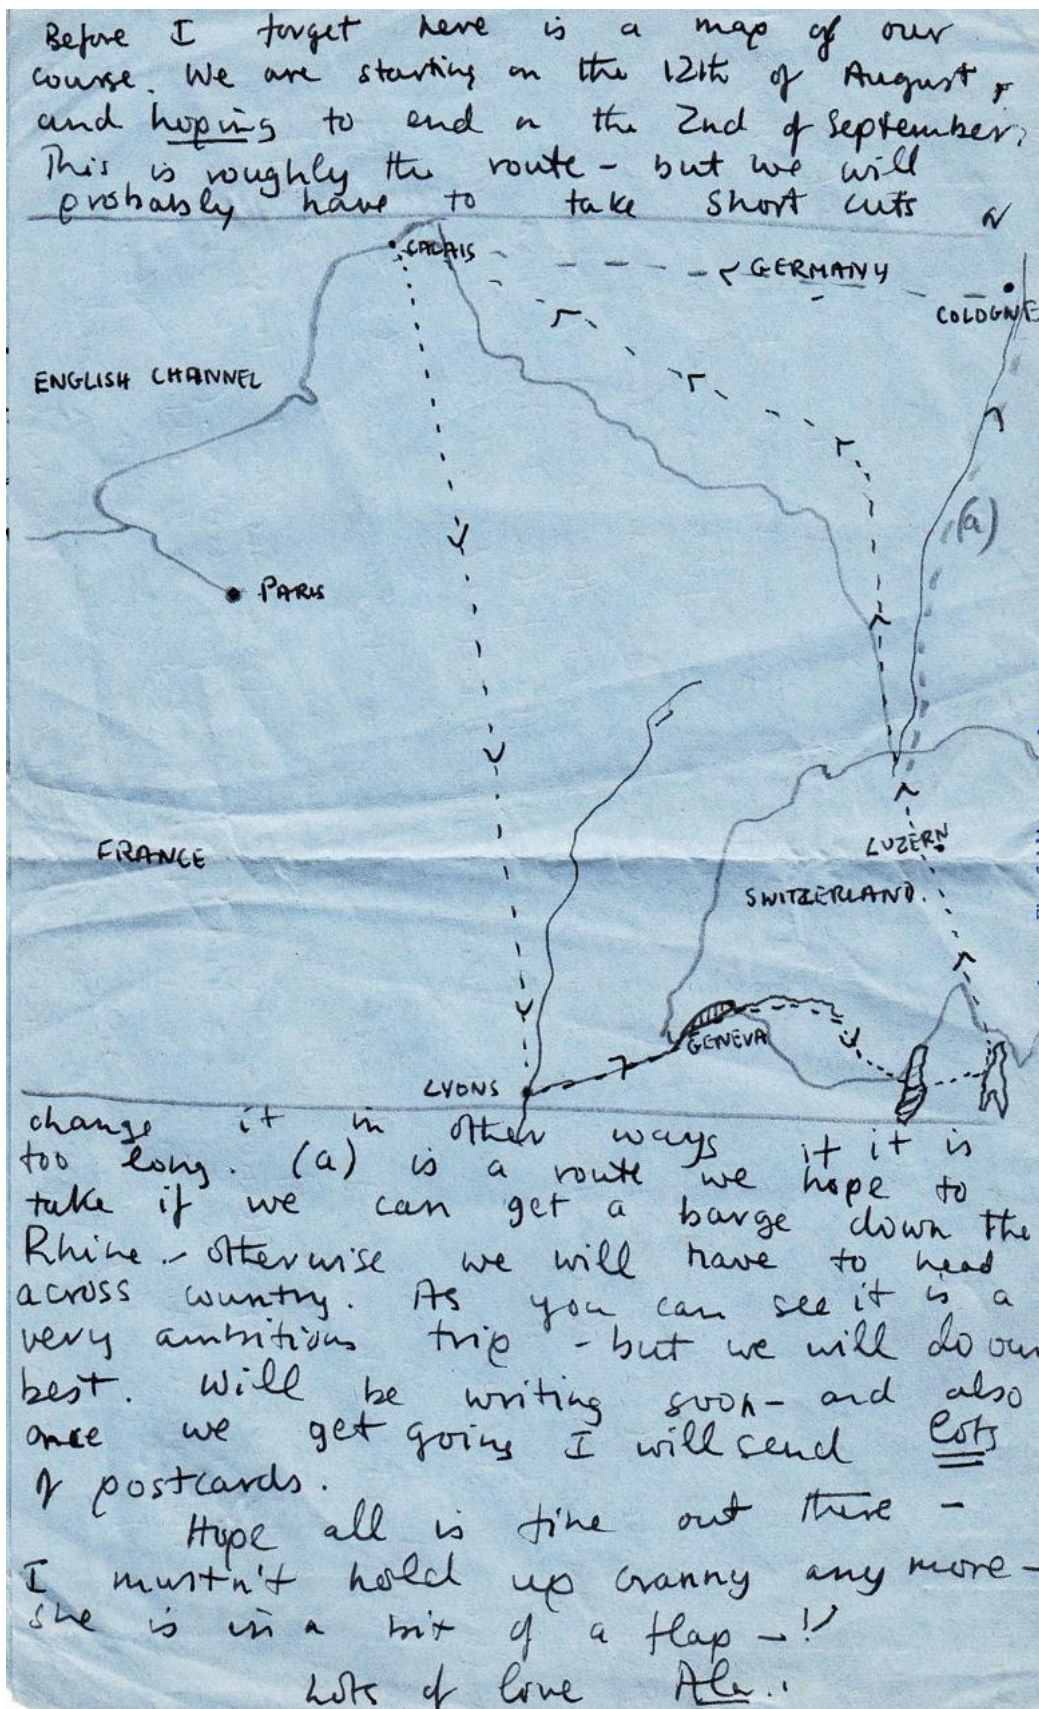 Before I forget here is a map of our
course. We are starting on the 12th of August,
and hoping to end on the 2nd of September.
This is roughly the route - but we will
probably have to take short cuts or
CALAIS
GERMANY
COLOGNE
ENGLISH CHANNEL
(a)
PARIS
LUZERN
FRANCE
SWITZERLAND.
GENEVA
LYONS
change it in other ways if it is
too long. (a) is a route we hope to
take if we can get a barge down the
Rhine - otherwise we will have to head
across country. As you can see it is a
very ambitious trip - but we will do our
best. Will be writing soon - and also
once we get going I will send lots
of postcards.
Hope all is fine out there -
I mustn't hold up Granny any more -
she is in a bit of a flap - !!
Lots of love